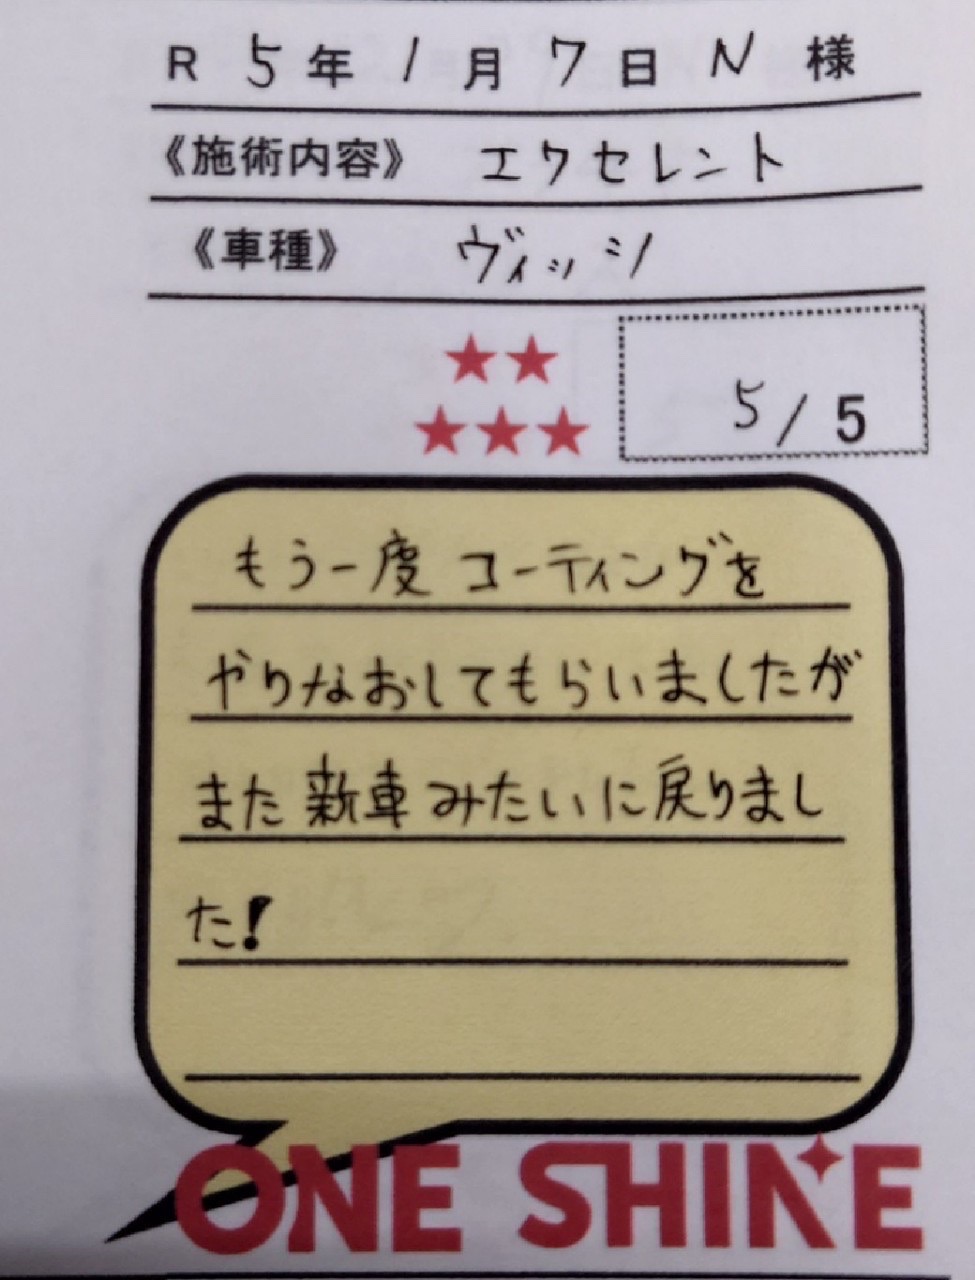 R 5年1月7日 N 様
《施術内容》 エクセレント
《車種》 ヴィッツ
★★
★★★
5/5
もう一度コーティングを
やりなおしてもらいましたが
また新車みたいに戻りまし
た!
ONE SHINE